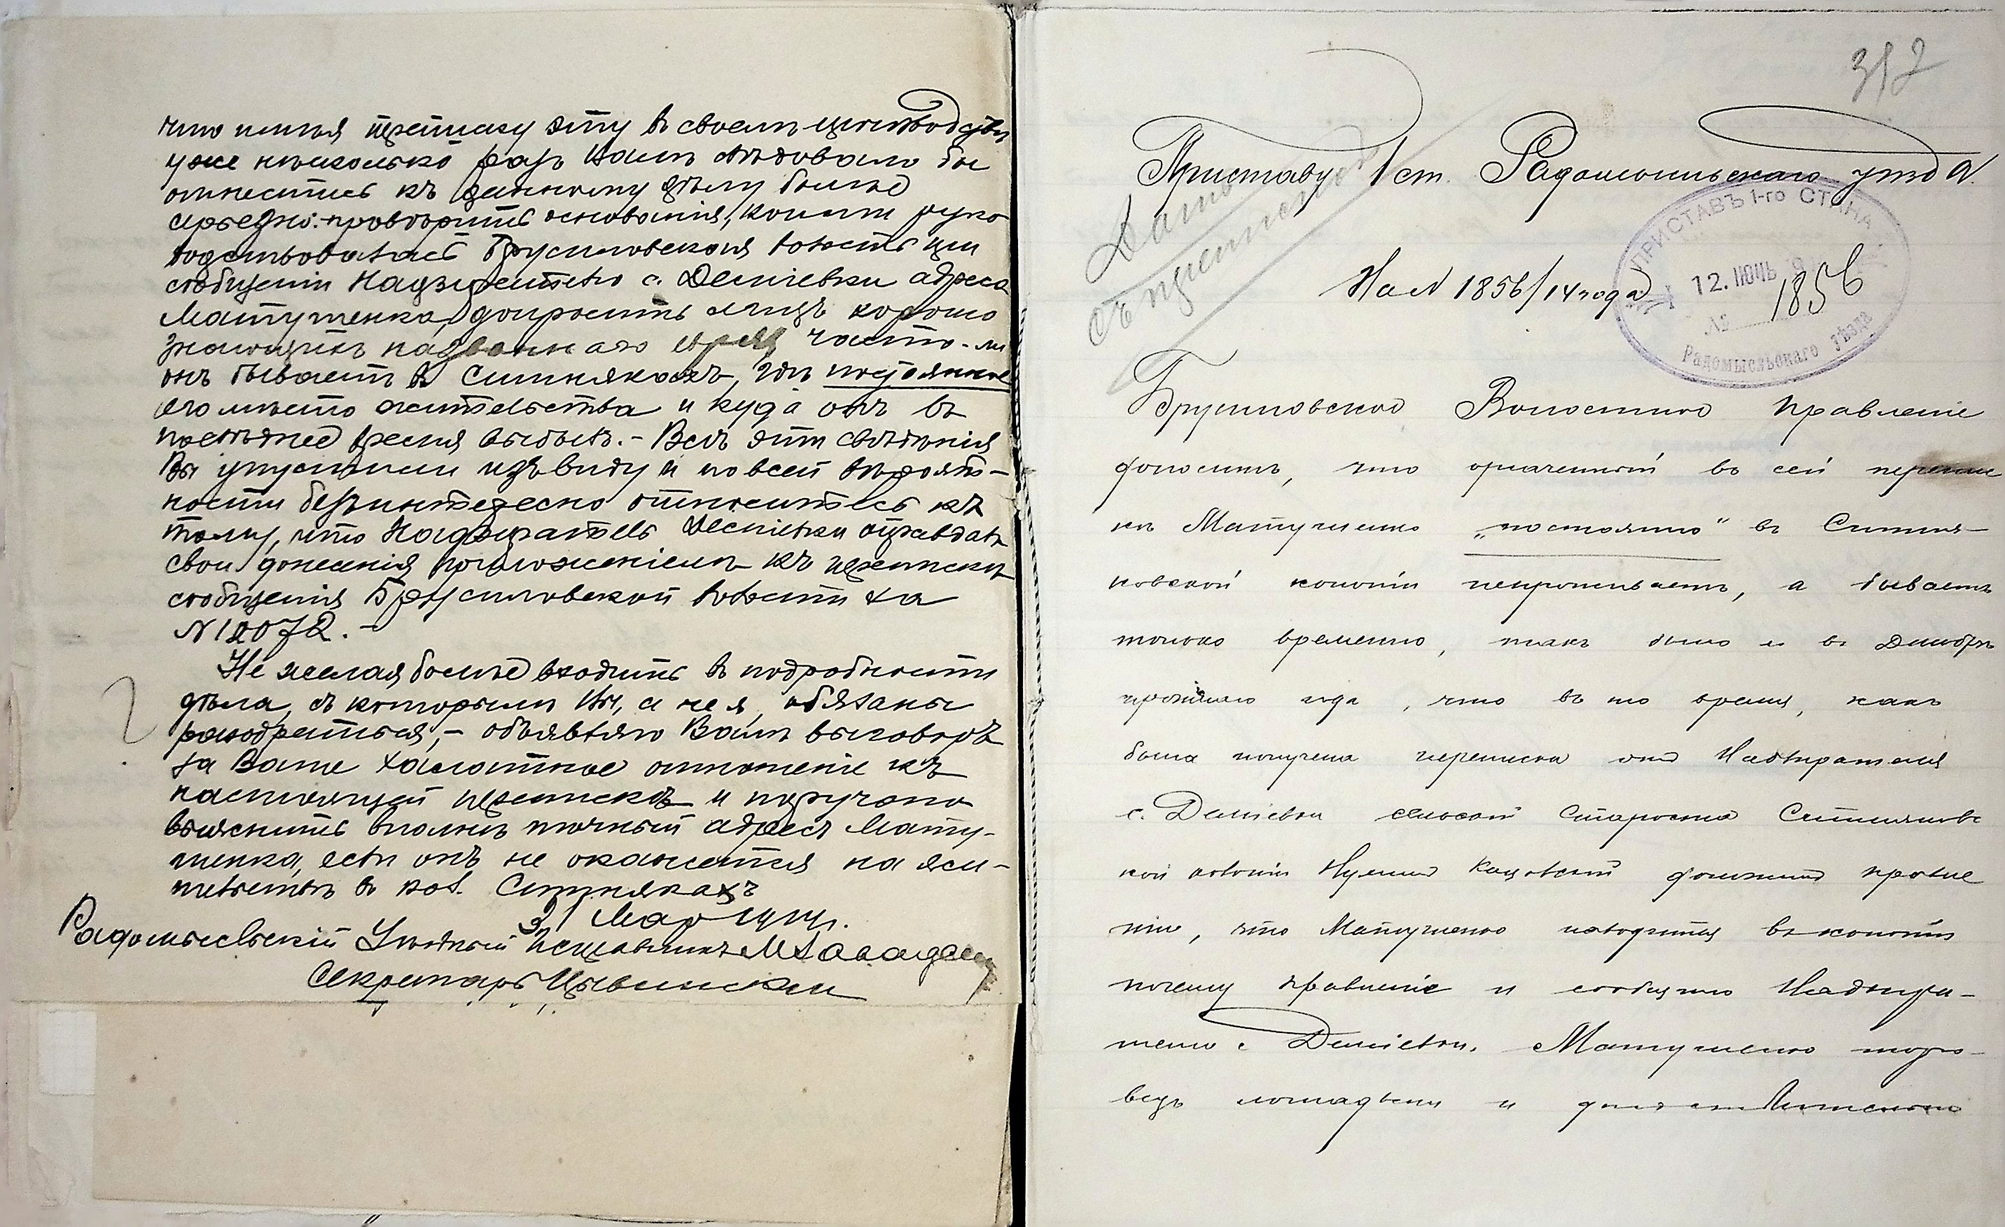 что имѣя переписку эту въ своемъ производствѣ
уже нѣсколько разъ Вамъ слѣдовало бы
отнестись къ данному дѣлу болѣе
серьезно: провѣрить основанія, коими руко
водствовалась Брусиловская волость при
сообщеніи Надзирателю с. Деміевки адреса
Матушенка, допросить лицъ хорошо
знающихъ названнаго часто-ли
онъ бываетъ въ Ситнякахъ, гдѣ постоянное
его мѣсто жительства и куда онъ въ
послѣднее время выбылъ. – Всѣ эти свѣдѣнія
Вы упустили изъ виду и по всей вѣроят-
ности безинтересно относитесь къ
тому, что Надзиратель Деміевки оправдалъ
свои донесенія приложеніемъ къ перепискѣ
сообщенія Брусиловской волости за
№ 12072. –
Не желая болѣе входить въ подробности
дѣла, съ которыми Вы, а не я, обязаны
разобраться, – объявляю Вамъ выговоръ
за Ваше халатное отношеніе къ
настоящей перепискѣ и поручаю
выяснить вполнѣ точный адресъ Мату-
шенка, если онъ не окажется на жи-
тельствѣ въ кол. Ситнякахъ
31 Мар 1914 г.
Радомысльскій Уѣздный Исправникъ
Секретарь
352
Приставу 1 ст. Радомысльскаго уѣзда.
съ
ПРИСТАВЪ 1-го СТАНА
12. ІЮНЬ
№ 1856
Радомысльскаго уѣзда
На № 1856/14 года
Брусиловское Волостное Правленіе
доноситъ, что означенный въ сей перепис
кѣ Матушенко „постоянно" въ Ситня-
ковской колоніи непроживаетъ, а бываетъ
только временно, такъ было и въ Декабрѣ
прошлаго года, что въ то время, какъ
была получена переписка отъ Надзирателя
с. Деміевки сельскій Староста Ситняковс
кой колоніи доложилъ правле
нію, что Матушенко находится въ колоніи
почему правленіе и сообщило Надзира-
телю с. Деміевки. Матушенко торго-
вецъ лошадьми и